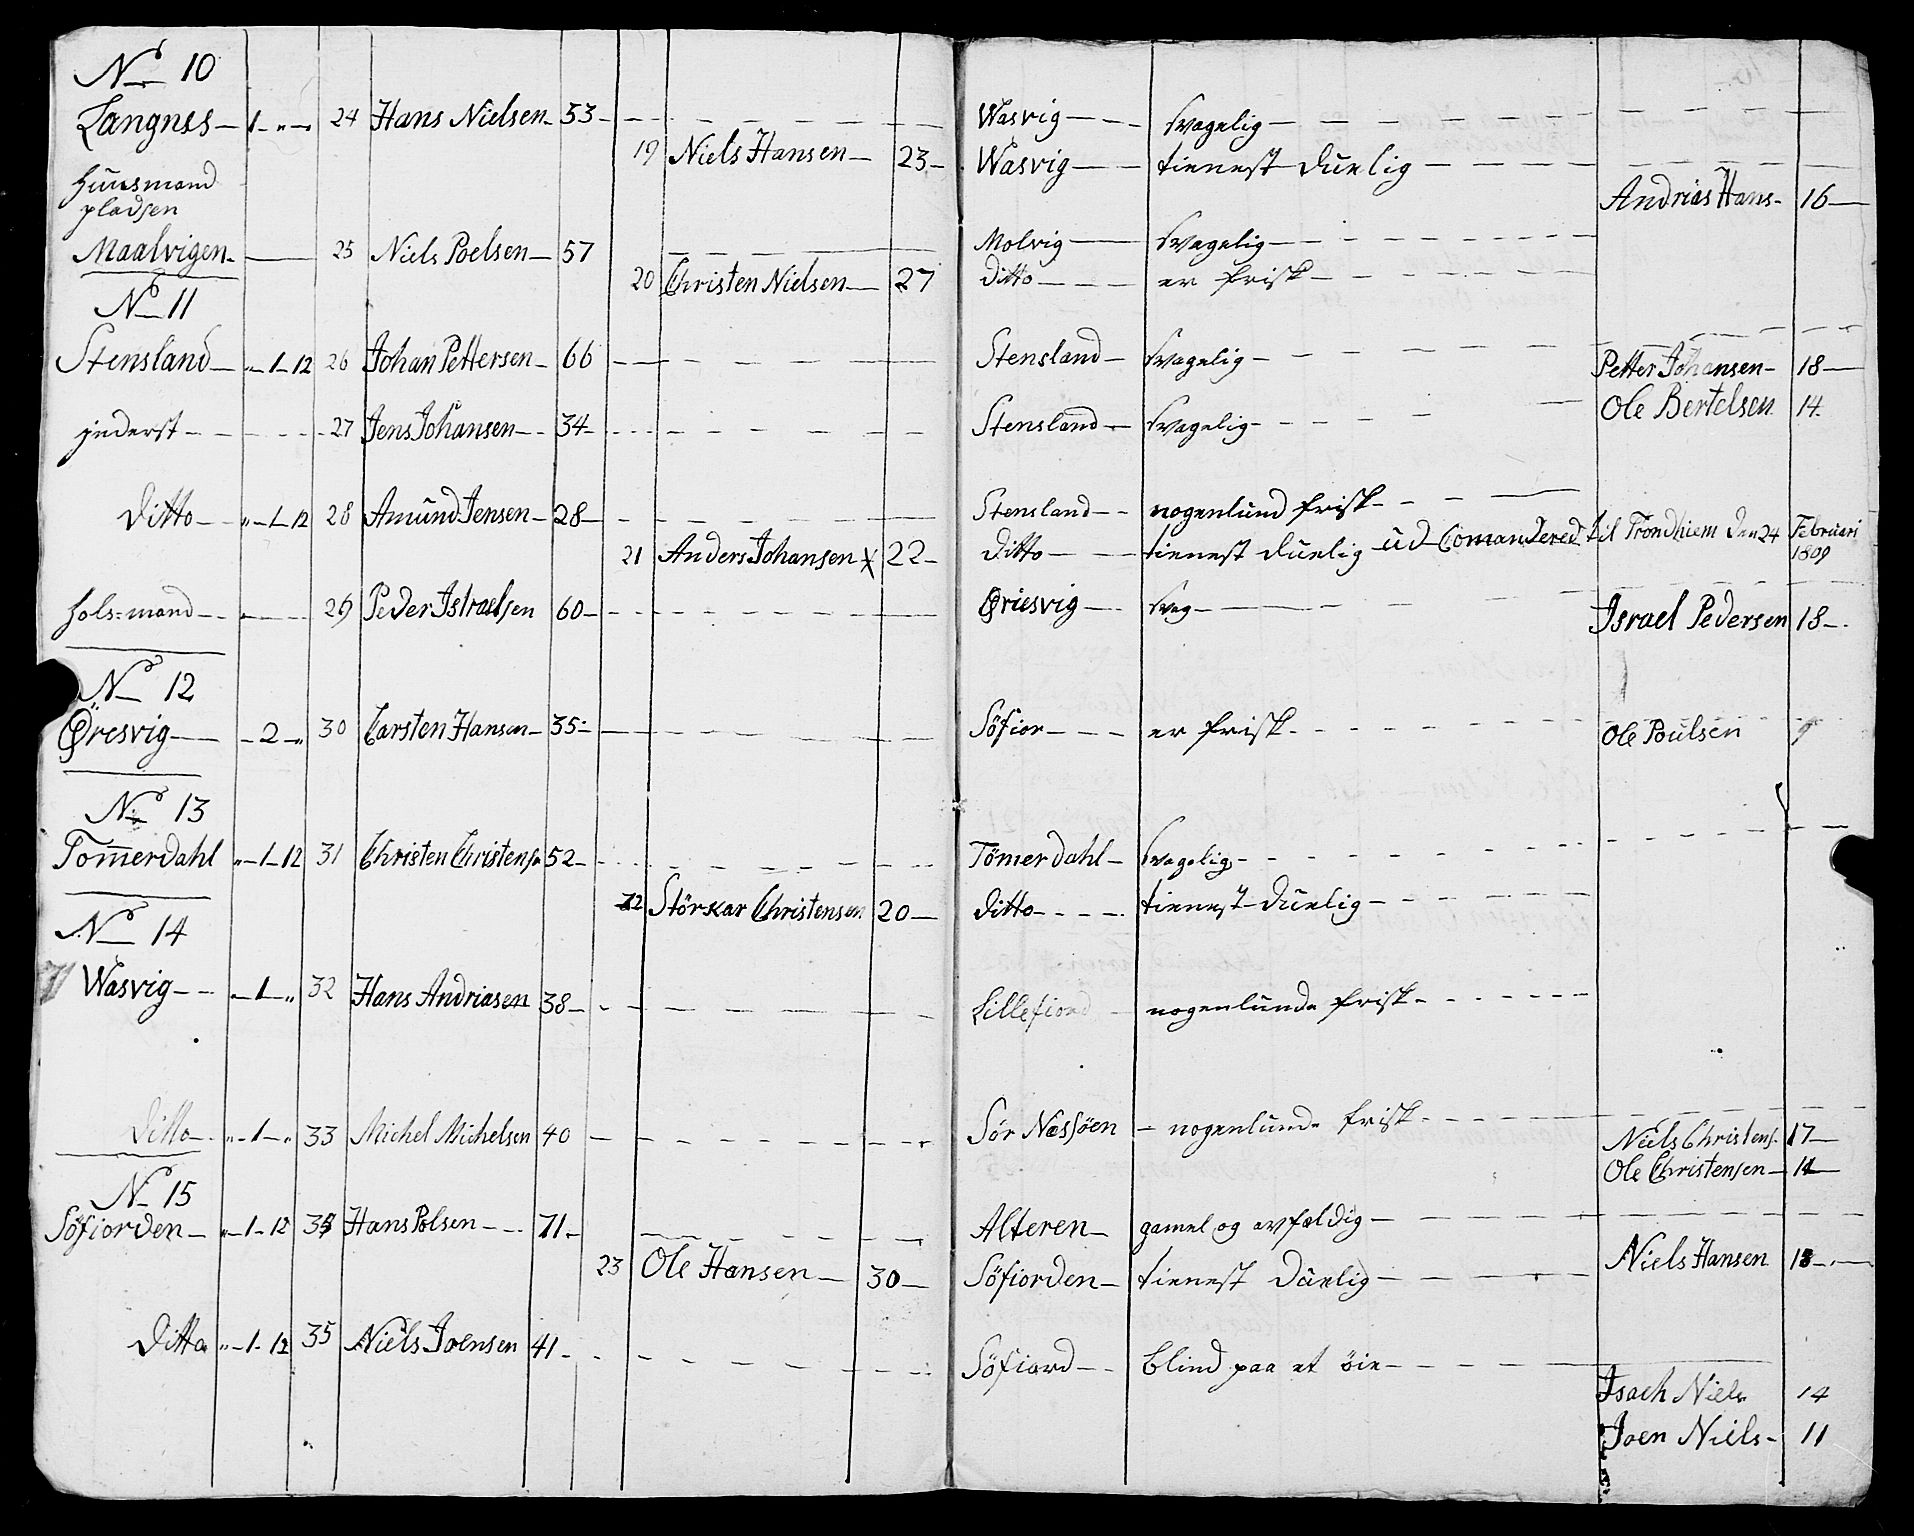 No 10
Langness 1 „ 24 Hans Nielsen 53 Wasvig svagelig
19 Niels Hansen 23 Wasvig tienest duelig
huusmand
pladsen
Andrias Hans 16
Maalvigen 25 Niels Poelsen 57 Molvig svagelig
20 Christen Nielsen 27 ditto er frisk
No 11
Stensland „ 1 12 26 Johan Pettersen 66 Stensland svagelig Petter Johansen 18
Ole Bertelsen 14
jnderst 27 Jens Johansen 34 Stensland svagelig
Ditto „ 1 12 28 Amund Jensen 28 Stensland nogenlund frisk
21 Anders Johansen X 22 ditto tienest duelig ud Comandered til Trondhiem den 24 Februari
1809
hols=mand 29 Peder Istraelsen 60 Øriesvig svag Israel Pedersen 18
No 12
Øresvig 2 „ 30 Carsten Hansen 35 Söfior er frisk Ole Poulsen 9
No 13
Tom̄erdahl „ 1 12 31 Christen Christens 52 Tömerdahl svagelig
22 Störkar Christensen 20 ditto tienest duelig
No 14
Wasvig 1 „ 32 Hans Andriasen 38 Lillefiord nogenlunde frisk
Ditto „ 1 „ 33 Michel Michelsen 40 Sör Næssöen nogenlunde frisk
Niels Christens 17
Ole Christensen 14
No 15
Söfiorden „ 1 12 34 Hans Polsen 71 Alteren gamel og avfældig
23 Ole Hansen 30 Söfiorden tienest duelig Niels Hansen 13
Ditto „ 1 12 35 Niels Joensen 41 Söfiord blind paa et öie
Isach Niels 14
Joen Niels 11